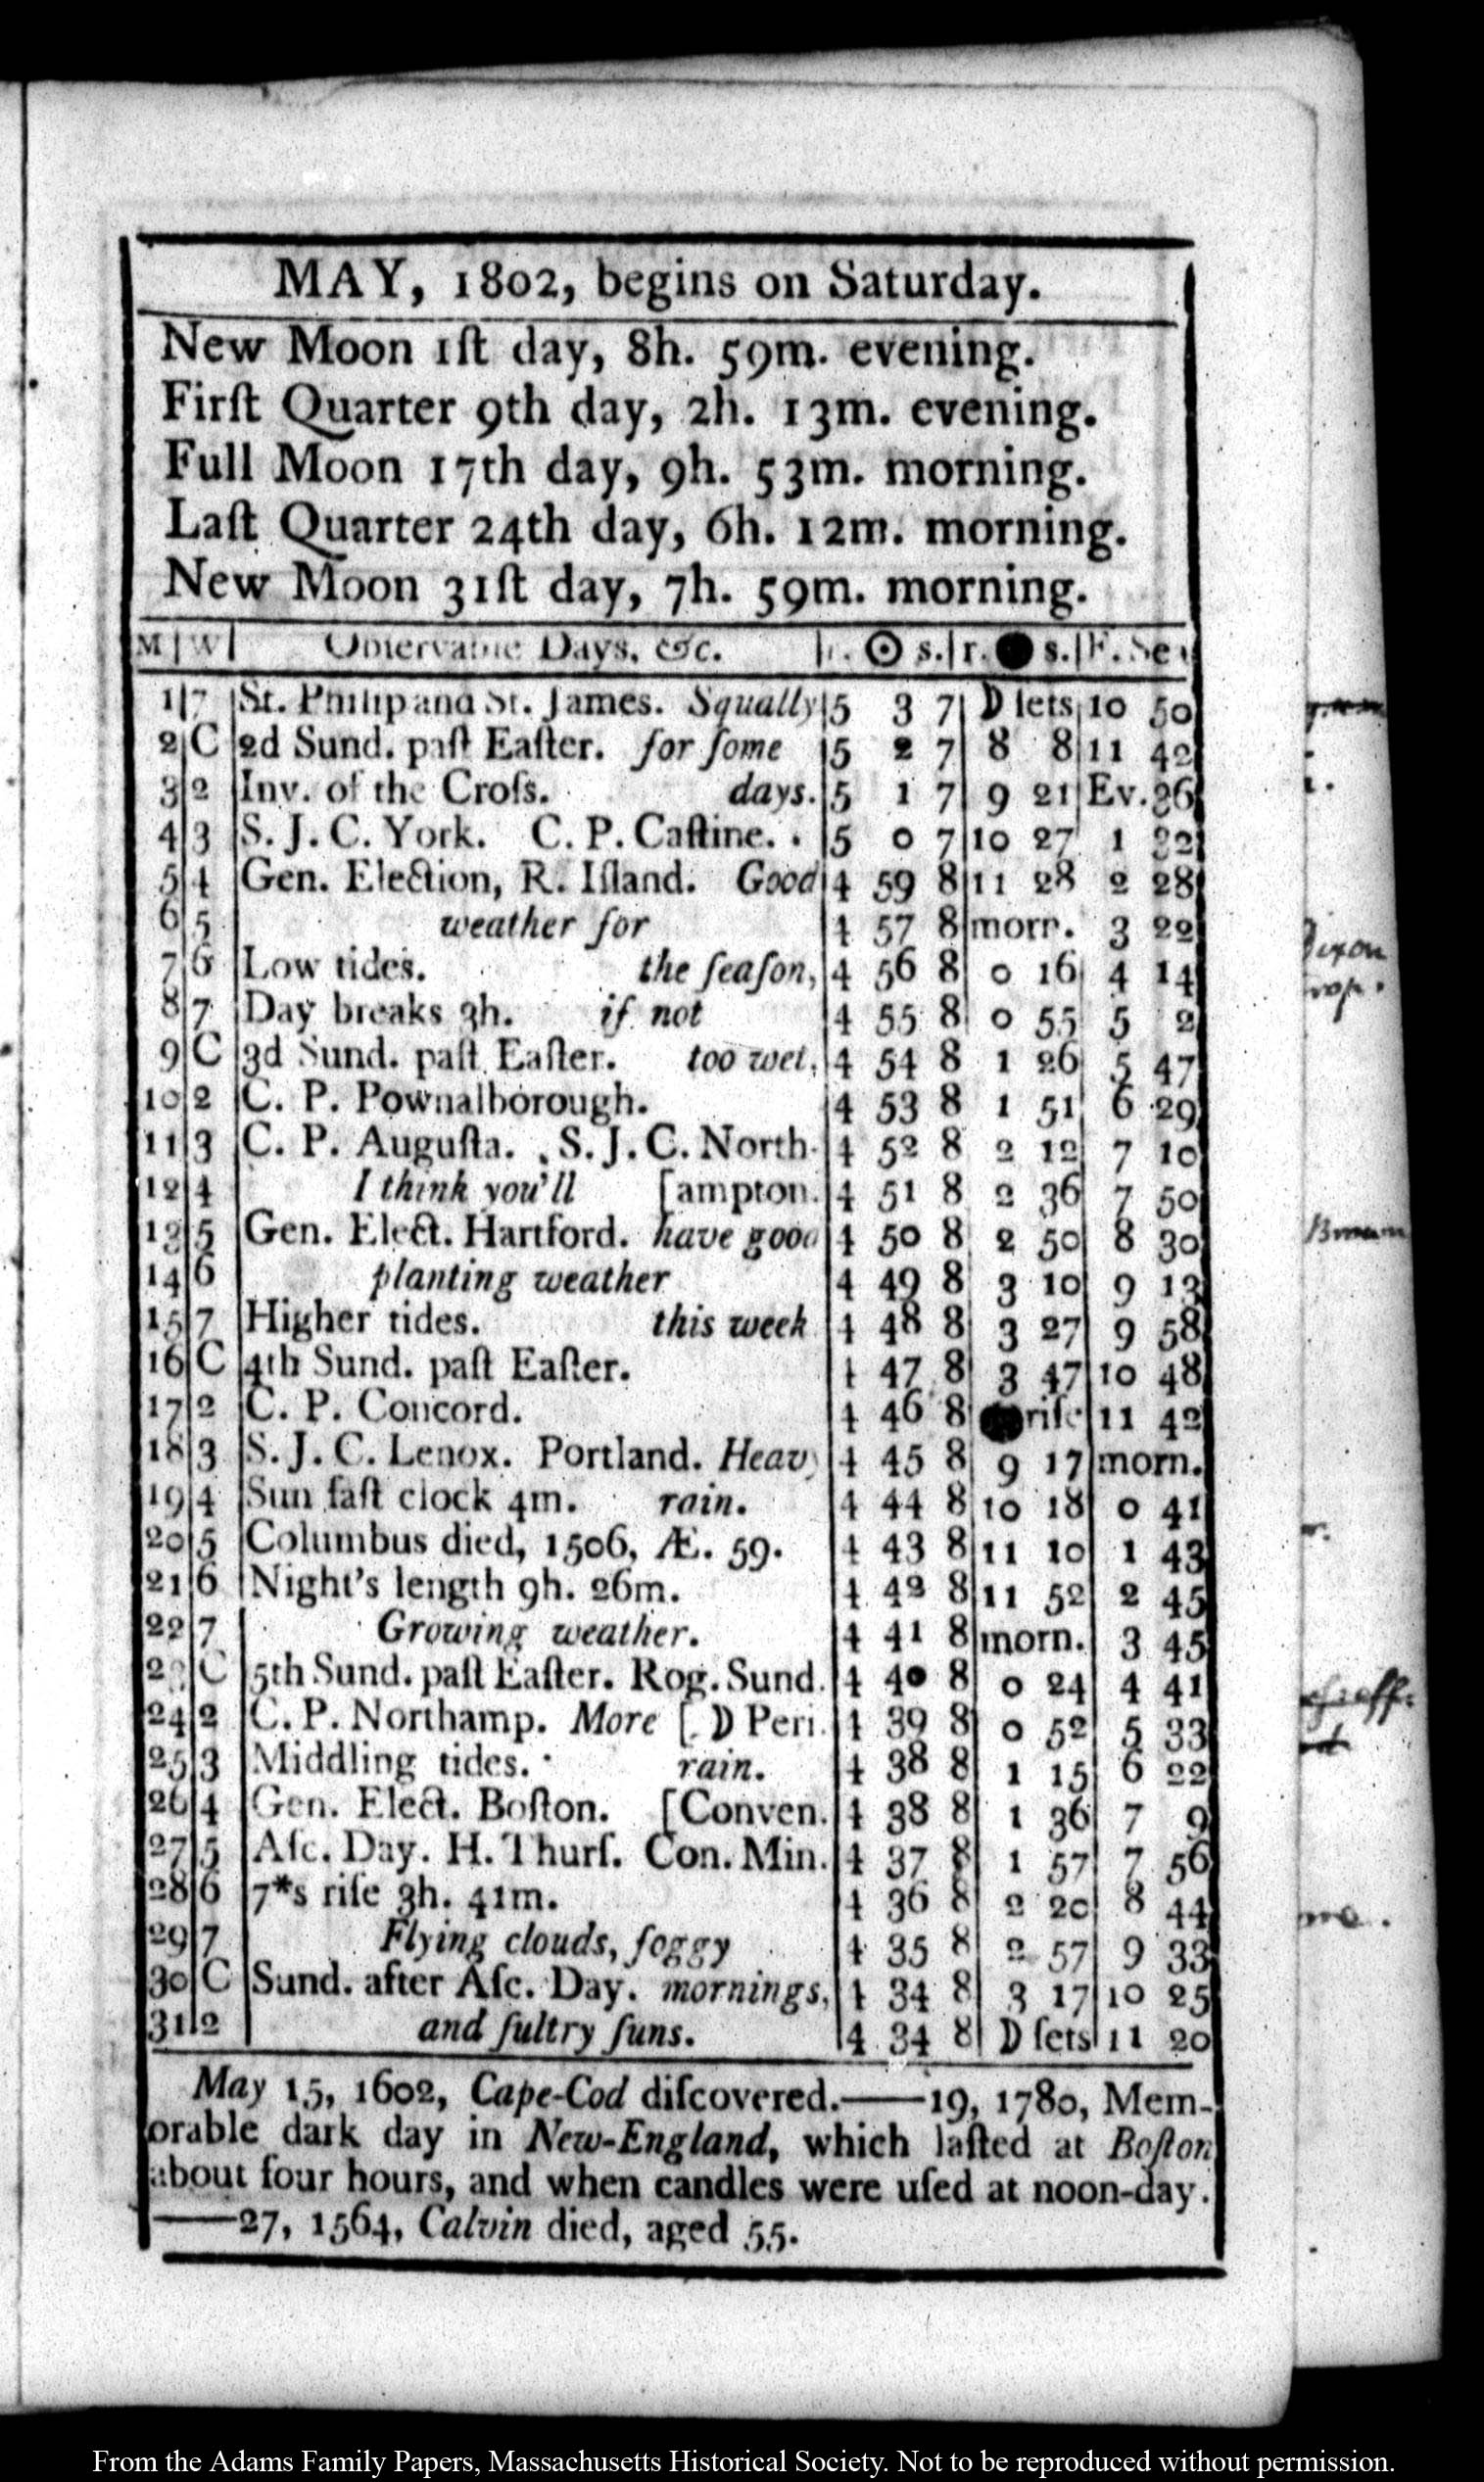 MAY, 1802, begins on Saturday.
New Moon 1ſt day, 8h. 59m. evening.
Firſt Quarter 9th day, 2h. 13m. evening.
Full Moon 17th day, 9h. 53m. morning.
Laſt Quarter 24th day, 6h. 12m. morning.
New Moon 31ſt day, 7h. 59m. morning.
M|W| Obſervable Days, &c. |r. ☉ s.|r. ● s.|F. Sea
1|7|St. Philip and St. James. Squally|5 3 7|D ſets|10 50
2|C|2d Sund. paſt Eaſter. for ſome|5 2 7|8 8|11 42
3|2|Inv. of the Croſs. days.|5 1 7|9 21|Ev. 36
4|3|S. J. C. York. C. P. Caſtine.|5 0 7|10 27|1 32
5|4|Gen. Election, R. Iſland. Good|4 59 8|11 28|2 28
6|5|weather for|4 57 8|morn.|3 22
7|6|Low tides. the ſeaſon,|4 56 8|0 16|4 14
8|7|Day breaks 3h. if not|4 55 8|0 55|5 2
9|C|3d Sund. paſt Eaſter. too wet.|4 54 8|1 26|5 47
10|2|C. P. Pownalborough.|4 53 8|1 51|6 29
11|3|C. P. Auguſta. S. J. C. North-|4 52 8|2 12|7 10
12|4|I think you'll [ampton.|4 51 8|2 36|7 50
13|5|Gen. Elect. Hartford. have good|4 50 8|2 50|8 30
14|6|planting weather|4 49 8|3 10|9 13
15|7|Higher tides. this week|4 48 8|3 27|9 58
16|C|4th Sund. paſt Eaſter.|4 47 8|3 47|10 48
17|2|C. P. Concord.|4 46 8|●riſe|11 42
18|3|S. J. C. Lenox. Portland. Heavy|4 45 8|9 17|morn.
19|4|Sun faſt clock 4m. rain.|4 44 8|10 18|0 41
20|5|Columbus died, 1506, Æ. 59.|4 43 8|11 10|1 43
21|6|Night's length 9h. 26m.|4 42 8|11 52|2 45
22|7|Growing weather.|4 41 8|morn.|3 45
23|C|5th Sund. paſt Eaſter. Rog. Sund.|4 40 8|0 24|4 41
24|2|C. P. Northamp. More [D Peri.|4 39 8|0 52|5 33
25|3|Middling tides. rain.|4 38 8|1 15|6 22
26|4|Gen. Elect. Boſton. [Conven.|4 38 8|1 36|7 9
27|5|Aſc. Day. H. Thurſ. Con. Min.|4 37 8|1 57|7 56
28|6|7*s riſe 3h. 41m.|4 36 8|2 20|8 44
29|7|Flying clouds, foggy|4 35 8|2 57|9 33
30|C|Sund. after Aſc. Day. mornings,|4 34 8|3 17|10 25
31|2|and ſultry ſuns.|4 34 8|D ſets|11 20
May 15, 1602, Cape-Cod diſcovered.——19, 1780, Mem-
orable dark day in New-England, which laſted at Boſton
about four hours, and when candles were uſed at noon-day.
——27, 1564, Calvin died, aged 55.
Dixon
Brown
From the Adams Family Papers, Massachusetts Historical Society. Not to be reproduced without permission.